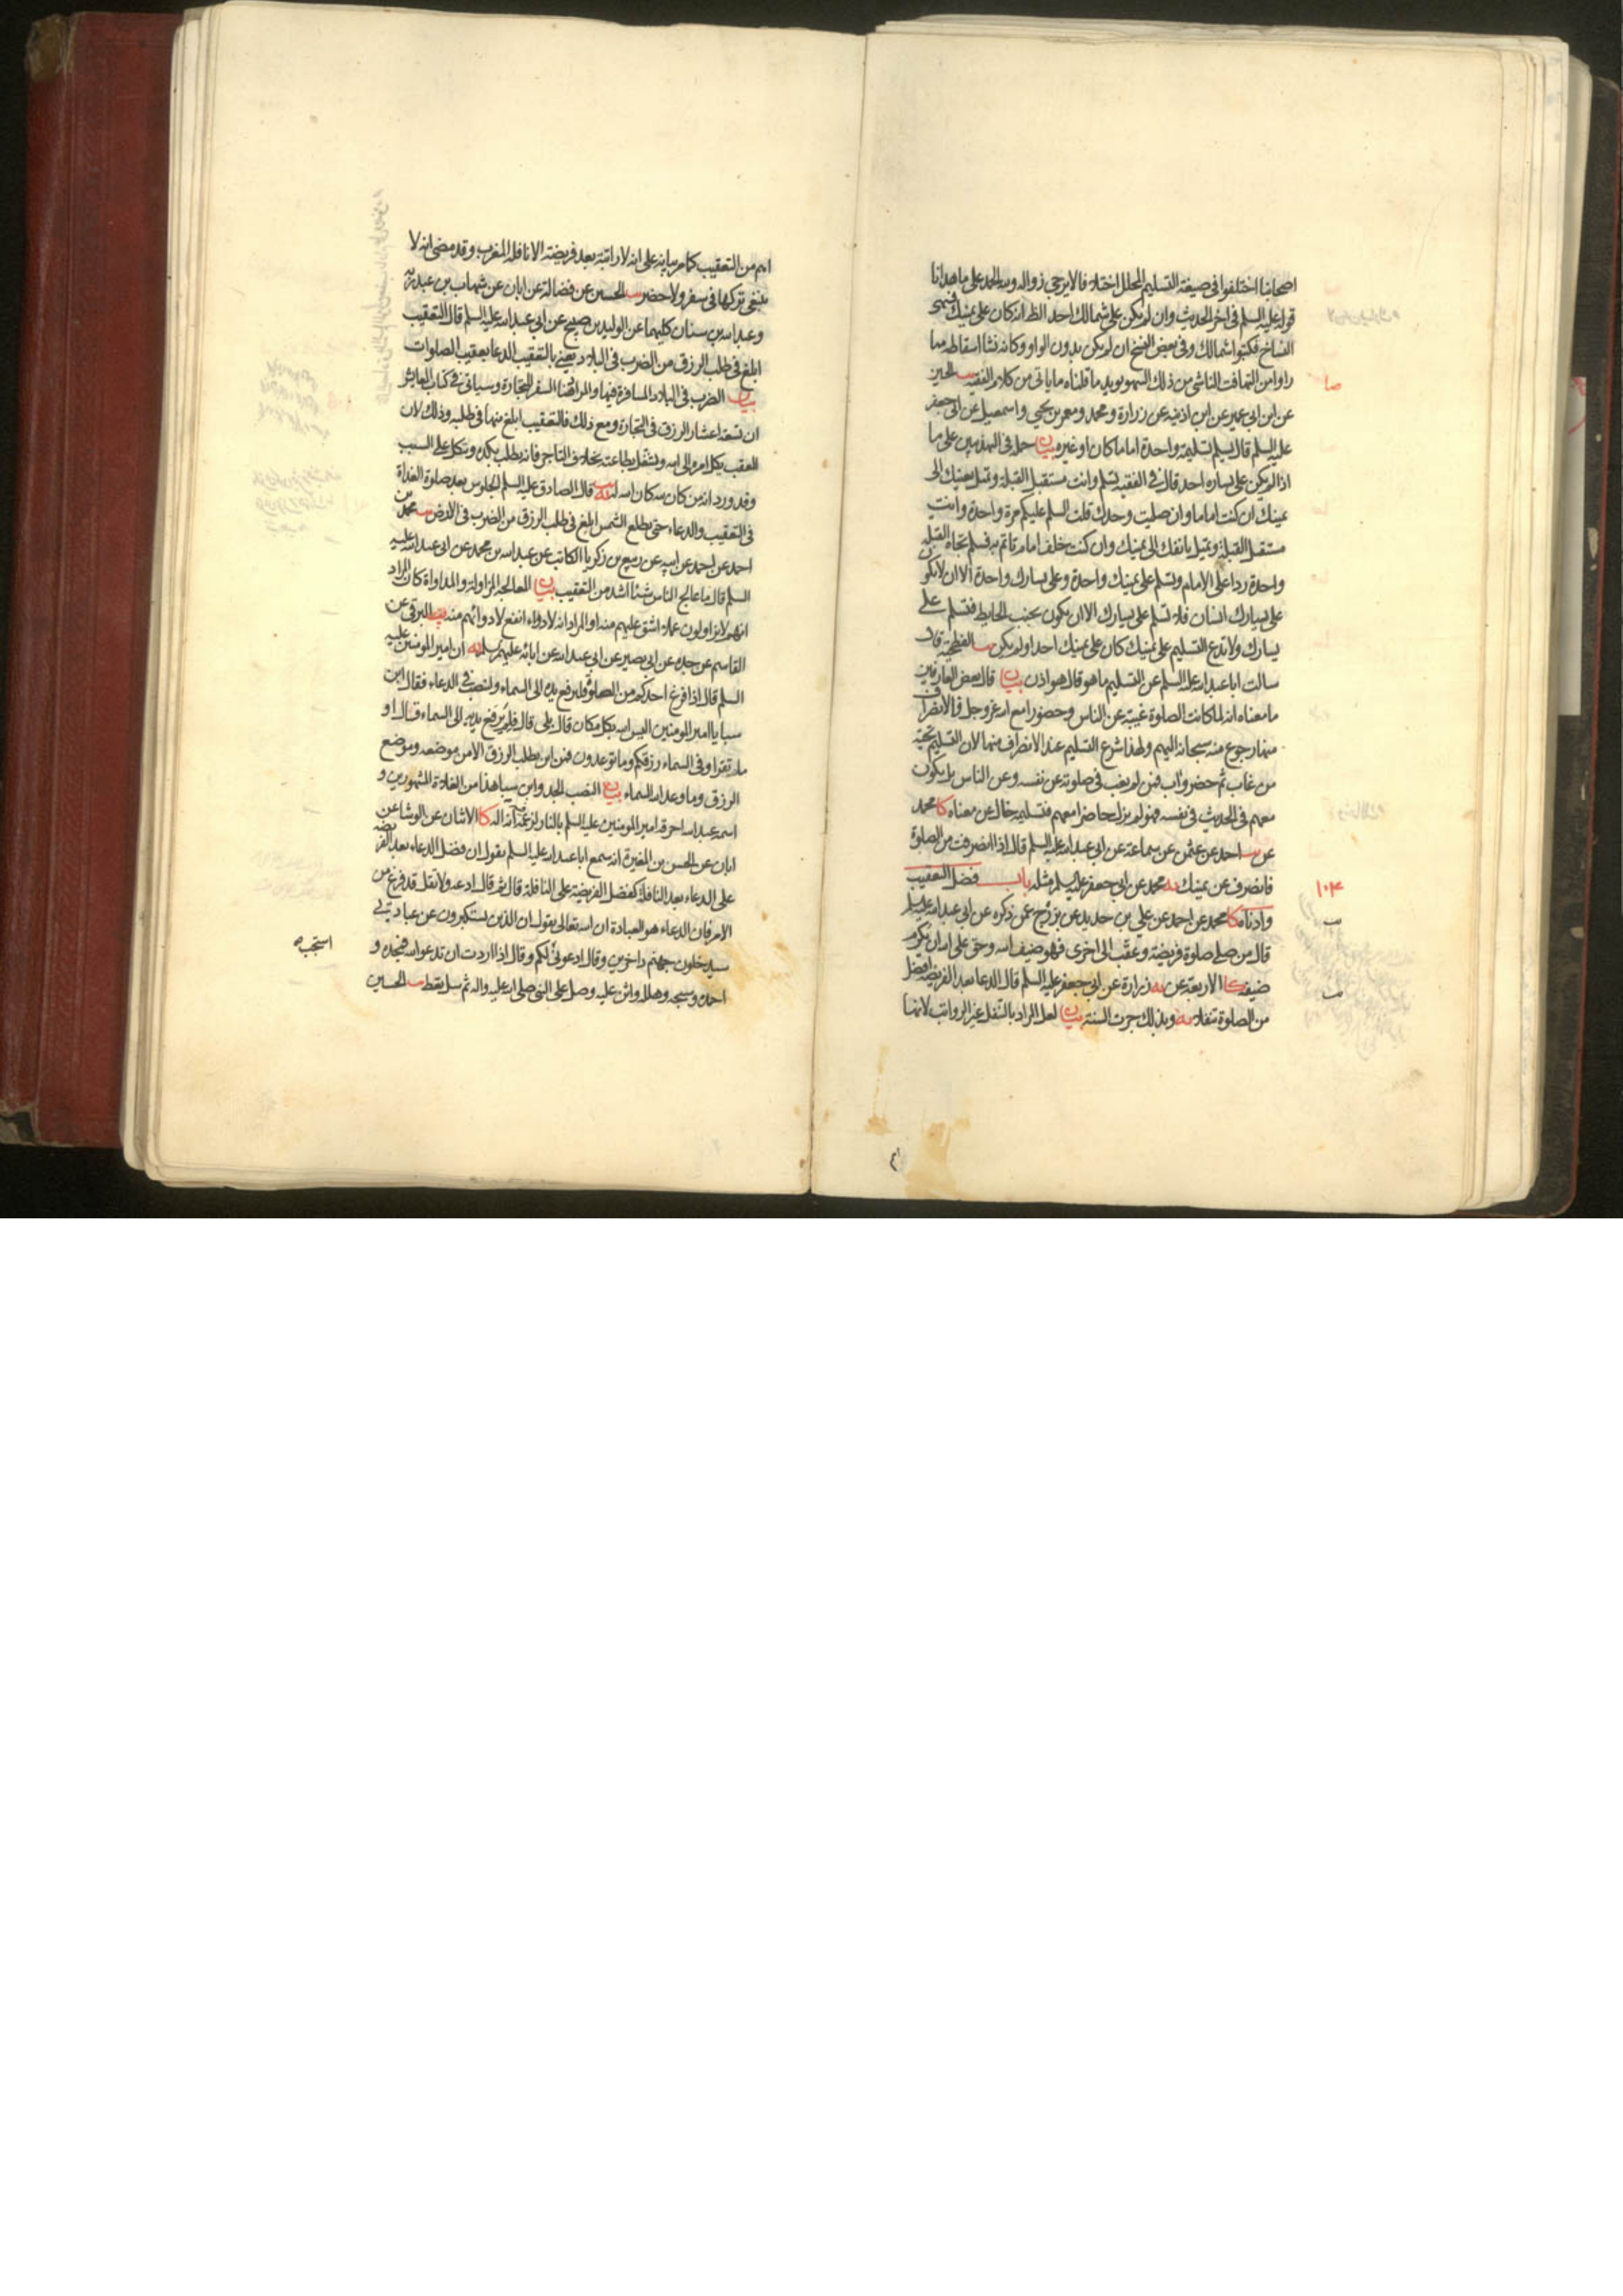 اصحابنا اختلفوا فى صيغة التسليم المحلل اختلافا لا يرجى زواله ولله الحمد على ما هدانا
قوله عليه السلم فى اخر الحديث وان لم يكن على شمالك احد الظ انه كان على يمينك فسهى
النساخ فكتبوا شمالك وفى بعض النسخ ان لم يكن بدون الواو وكانه نشا اسقاطه مما
راوا من التهافت الناشى من ذلك السهو ويويد ما قلناه ما ياتى من كلام الفقيه يب الحسين
عن ابن ابى عمير عن ابن اذينه عن زرارة ومحمد ومعمر بن يحيى واسمعيل عن ابى جعفر
عليه السلم قال يسلم تسليمة واحدة اماما كان او غيره بيان حمله فى التهذيبين على ما
اذا لم يكن على يساره احد قال فى الفقيه تسلم وانت مستقبل القبلة وتميل بعينك الى
يمينك ان كنت اماما وان صليت وحدك قلت السلم عليكم مرة واحدة وانت
مستقبل القبلة وتميل بانفك الى يمينك وان كنت خلف امام تاتم به فسلم تجاه القبلة
واحدة ردا على الامام وتسلم على يمينك واحدة وعلى يسارك واحدة الا ان لا يكون
على يسارك انسان فلا تسلم على يسارك الا ان يكون بجنب الحايط فتسلم على
يسارك ولا تدع التسليم على يمينك كان على يمينك احد او لم يكن يب الفطحية قال
سالت ابا عبد الله عليه السلم عن التسليم ما هو قال هو اذن بيان قال بعض العارفين
ما معناه انه لما كانت الصلوة غيبة عن الناس وحضورا مع الله عز وجل فالانصراف
عنها رجوع منه سبحانه اليهم ولهذا شرع التسليم عند الانصراف منها لان التسليم تحية
من غاب ثم حضر واب فمن لم يغب فى صلوته عن نفسه وعن الناس بل يكون
معهم فى الحديث فى نفسه فهو لم يزل حاضرا معهم فتسليمه خال عن معناه كا محمد
عن يب احمد عن عثمن عن سماعة عن ابى عبد الله عليه السلم قال اذا انصرفت من الصلوة
فانصرف عن يمينك يه محمد عن ابى جعفر عليه السلم مثله باب فضل التعقيب
وادناه كا محمد عن احمد عن على بن حديد عن بزرج عمن ذكره عن ابى عبد الله عليه السلم
قال من صلى صلوة فريضة وعقب الى اخرى فهو ضيف الله وحق على الله ان يكرم
ضيفه كا الاربعة عن يه زرارة عن ابى جعفر عليه السلم قال الدعا بعد الفريضة افضل
من الصلوة تنفلا يه وبذلك جرت السنة بيان لعل المراد بالتنفل غير الرواتب لانها
١٠۴
اهم من التعقيب كما مر بيانه على انه لا راتبة بعد فريضة الا نافلة المغرب وقد مضى انه لا
ينبغى تركها فى سفر ولا حضر يب الحسين عن فضالة عن ابان عن شهاب بن عبد ربه
وعبد الله بن سنان كليهما عن الوليد بن صبيح عن ابى عبد الله عليه السلم قال التعقيب
ابلغ فى طلب الرزق من الضرب فى البلاد يعنى بالتعقيب الدعا بعقيب الصلوات
بيان الضرب فى البلاد المسافرة فيها والمراد هنا السفر للتجارة وسياتى فى كتاب المعايش
ان تسعة اعشار الرزق فى التجارة ومع ذلك فالتعقيب ابلغ منها فى طلبه وذلك لان
المعقب يكل امره الى الله ويشتغل بطاعته بخلاف التاجر فانه يطلب بكده ويتكل على السبب
وقد ورد انه من كان لله كان الله له يه قال الصادق عليه السلم الجلوس بعد صلوة الغداة
فى التعقيب والدعاء حتى تطلع الشمس ابلغ فى طلب الرزق من الضرب فى الارض يب محمد بن
احمد عن احمد عن ابيه عن ربيع بن زكريا الكاتب عن عبد الله بن محمد عن ابى عبد الله عليه
السلم قال ما عالج الناس شيئا اشد من التعقيب بيان المعالجة المزاولة والمداواة كان المراد
انهم لا يزاولون عملا اشق عليهم منه او المراد انه لا دواء انفع لادوائهم منه يب البرقى عن
القاسم عن جده عن ابى بصير عن ابى عبد الله عن ابائه عليهم السلم يه ان امير المومنين عليه
السلم قال اذا فرغ احدكم من الصلوة فليرفع يديه الى السماء ولينصب فى الدعاء فقال ابن
سبا يا امير المومنين اليس الله بكل مكان قال بلى قال فلم يرفع يديه الى السماء فقال او
ما تقرا وفى السماء رزقكم وما توعدون فمن اين يطلب الرزق الا من موضعه وموضع
الرزق وما وعد الله السماء بيان النصب الجد وابن سبا هذا من الغلاة المشهورين و
اسمه عبد الله احرقه امير المومنين عليه السلم بالنار لزعمه انه اله كا الاثنان عن الوشا عن
ابان عن الحسن بن المغيرة انه سمع ابا عبد الله عليه السلم يقول ان فضل الدعاء بعد الفريضة
على الدعاء بعد النافلة كفضل الفريضة على النافلة قال ثم قال ادعه ولا تقل قد فرغ من
الامر فان الدعاء هو العبادة ان الله تعالى يقول ان الذين يستكبرون عن عبادتى
سيدخلون جهنم داخرين وقال ادعونى لكم وقال اذا اردت ان تدعو الله فمجده و
استجب
احمده وسبحه وهلله واثن عليه وصل على النبى صلى الله عليه واله ثم سل تعط يب الحسين